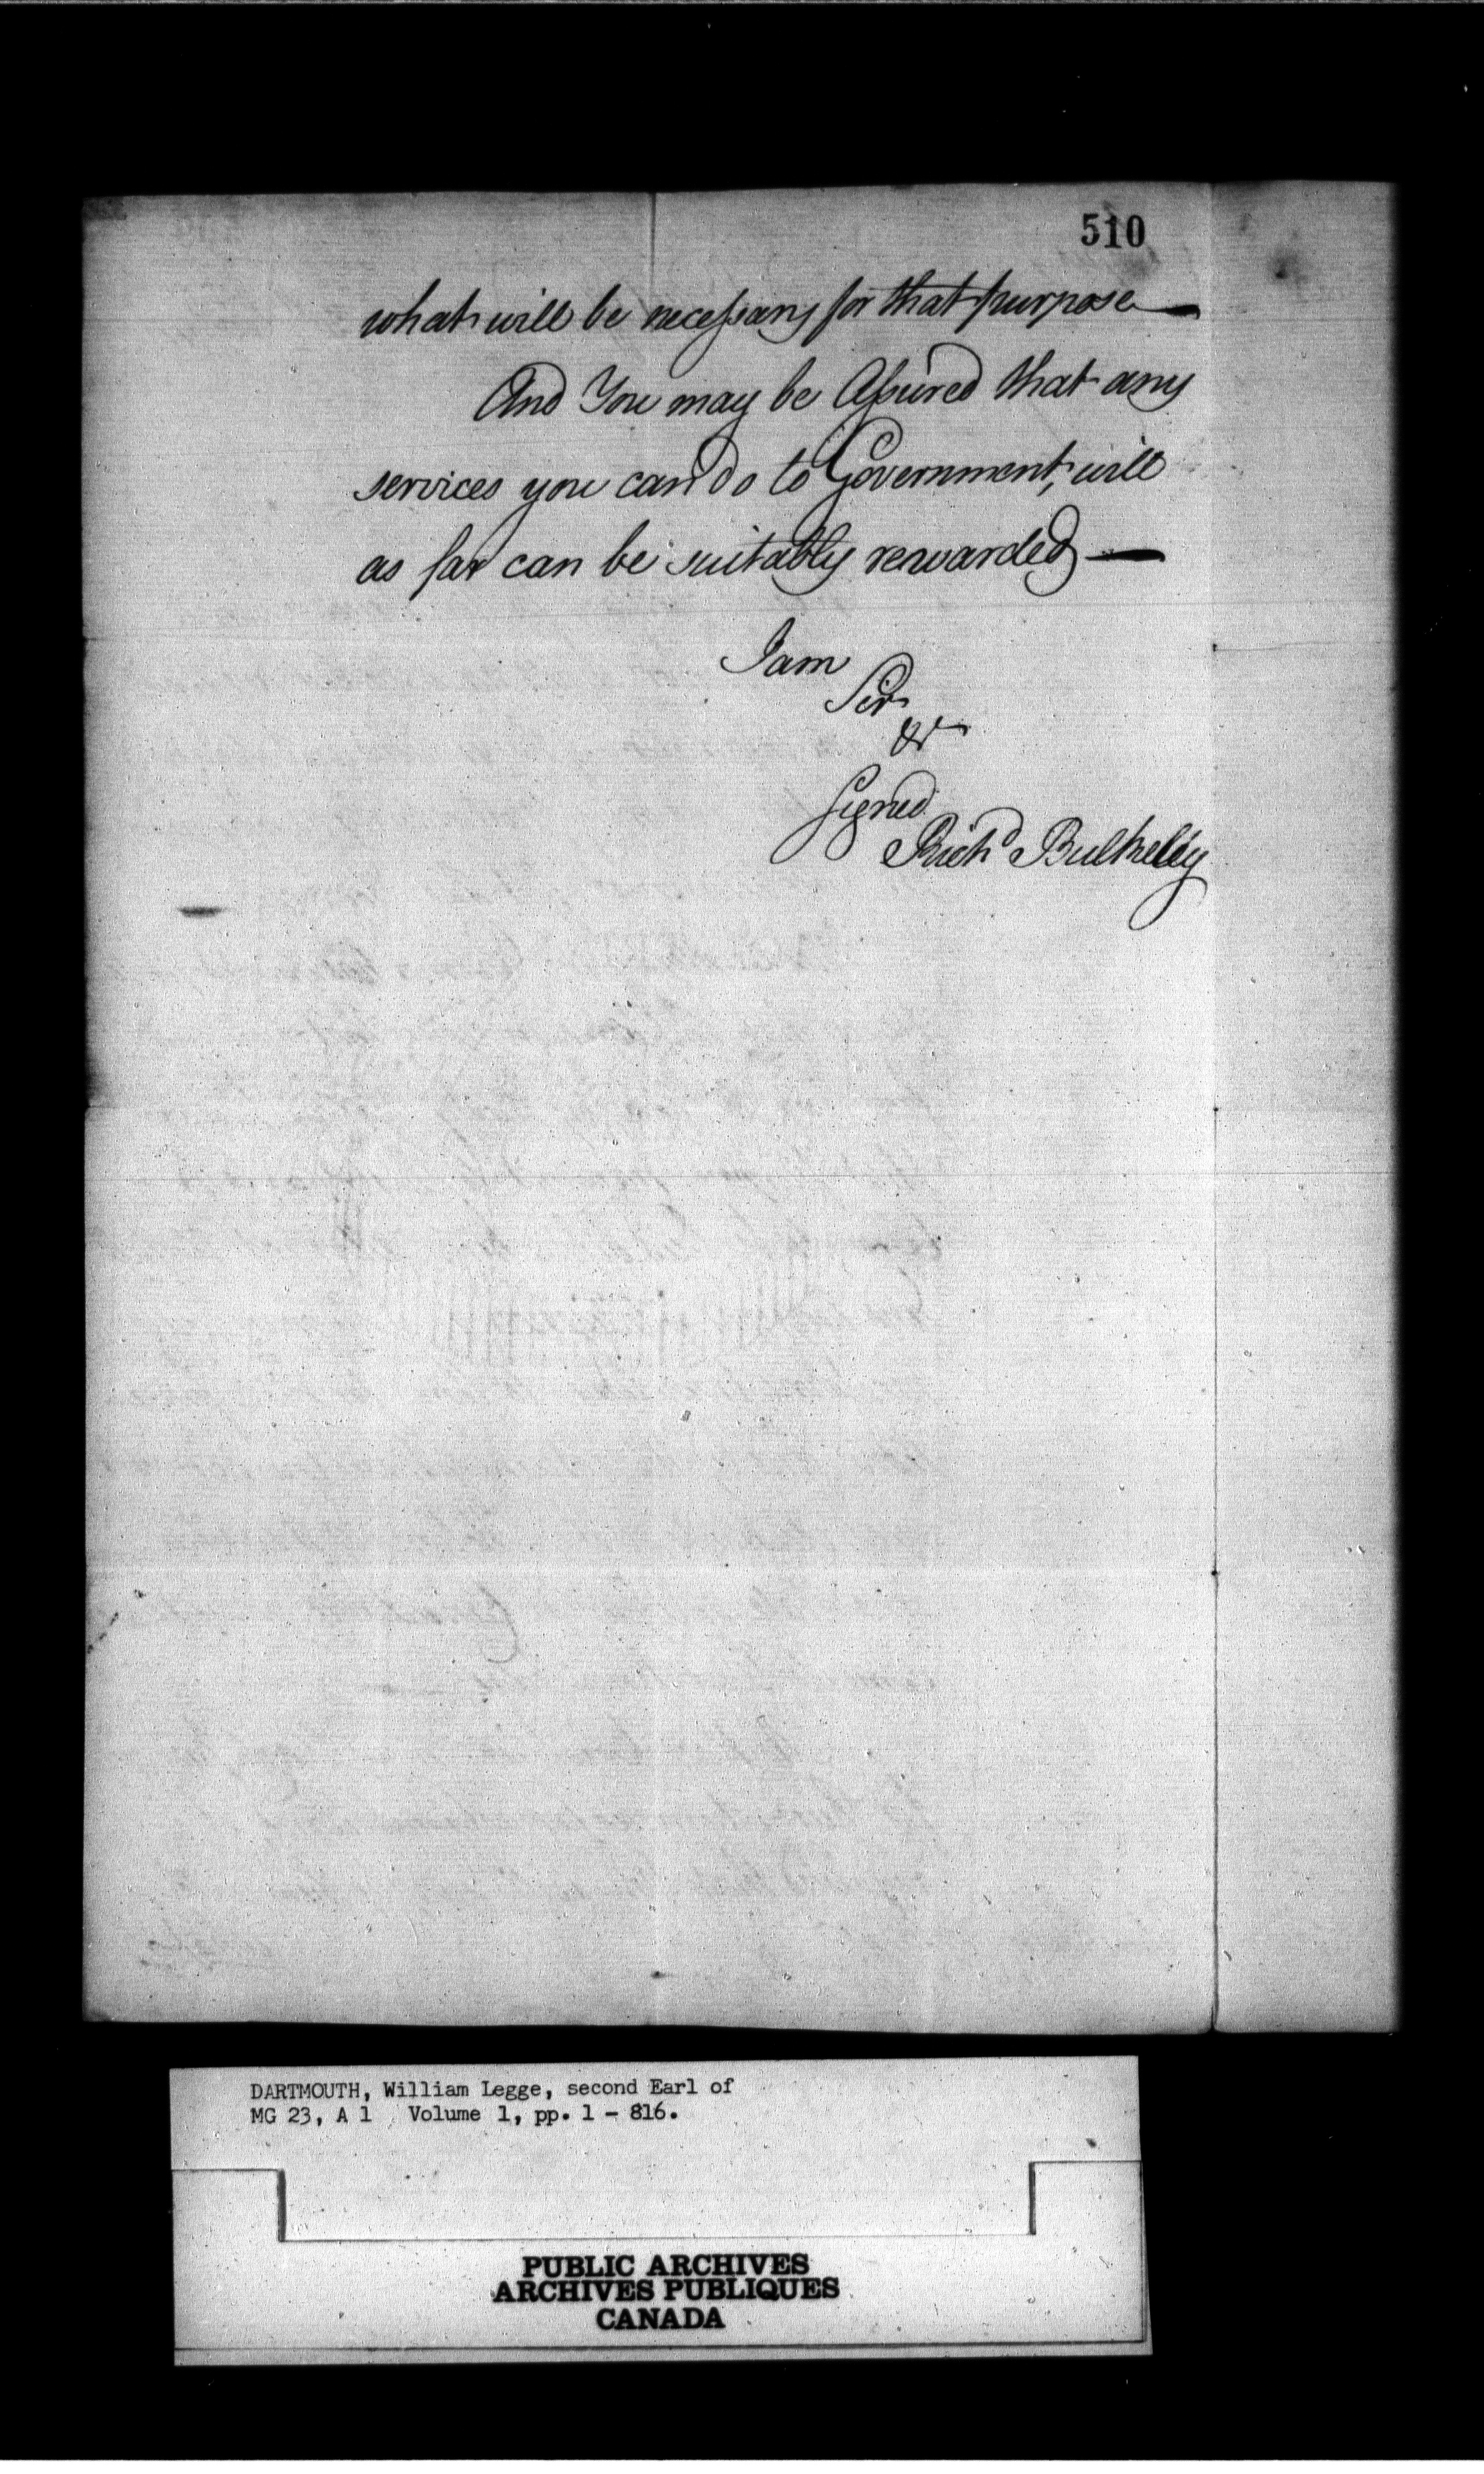 510
what will be necessary for that purpose —
And You may be Assured that any
services you can do to Government, will
as far can be suitably rewarded —
I am
Sir
&c
Signed
Richd Bulkeley
DARTMOUTH, William Legge, second Earl of
MG 23, A 1 Volume 1, pp. 1 - 816.
PUBLIC ARCHIVES
ARCHIVES PUBLIQUES
CANADA